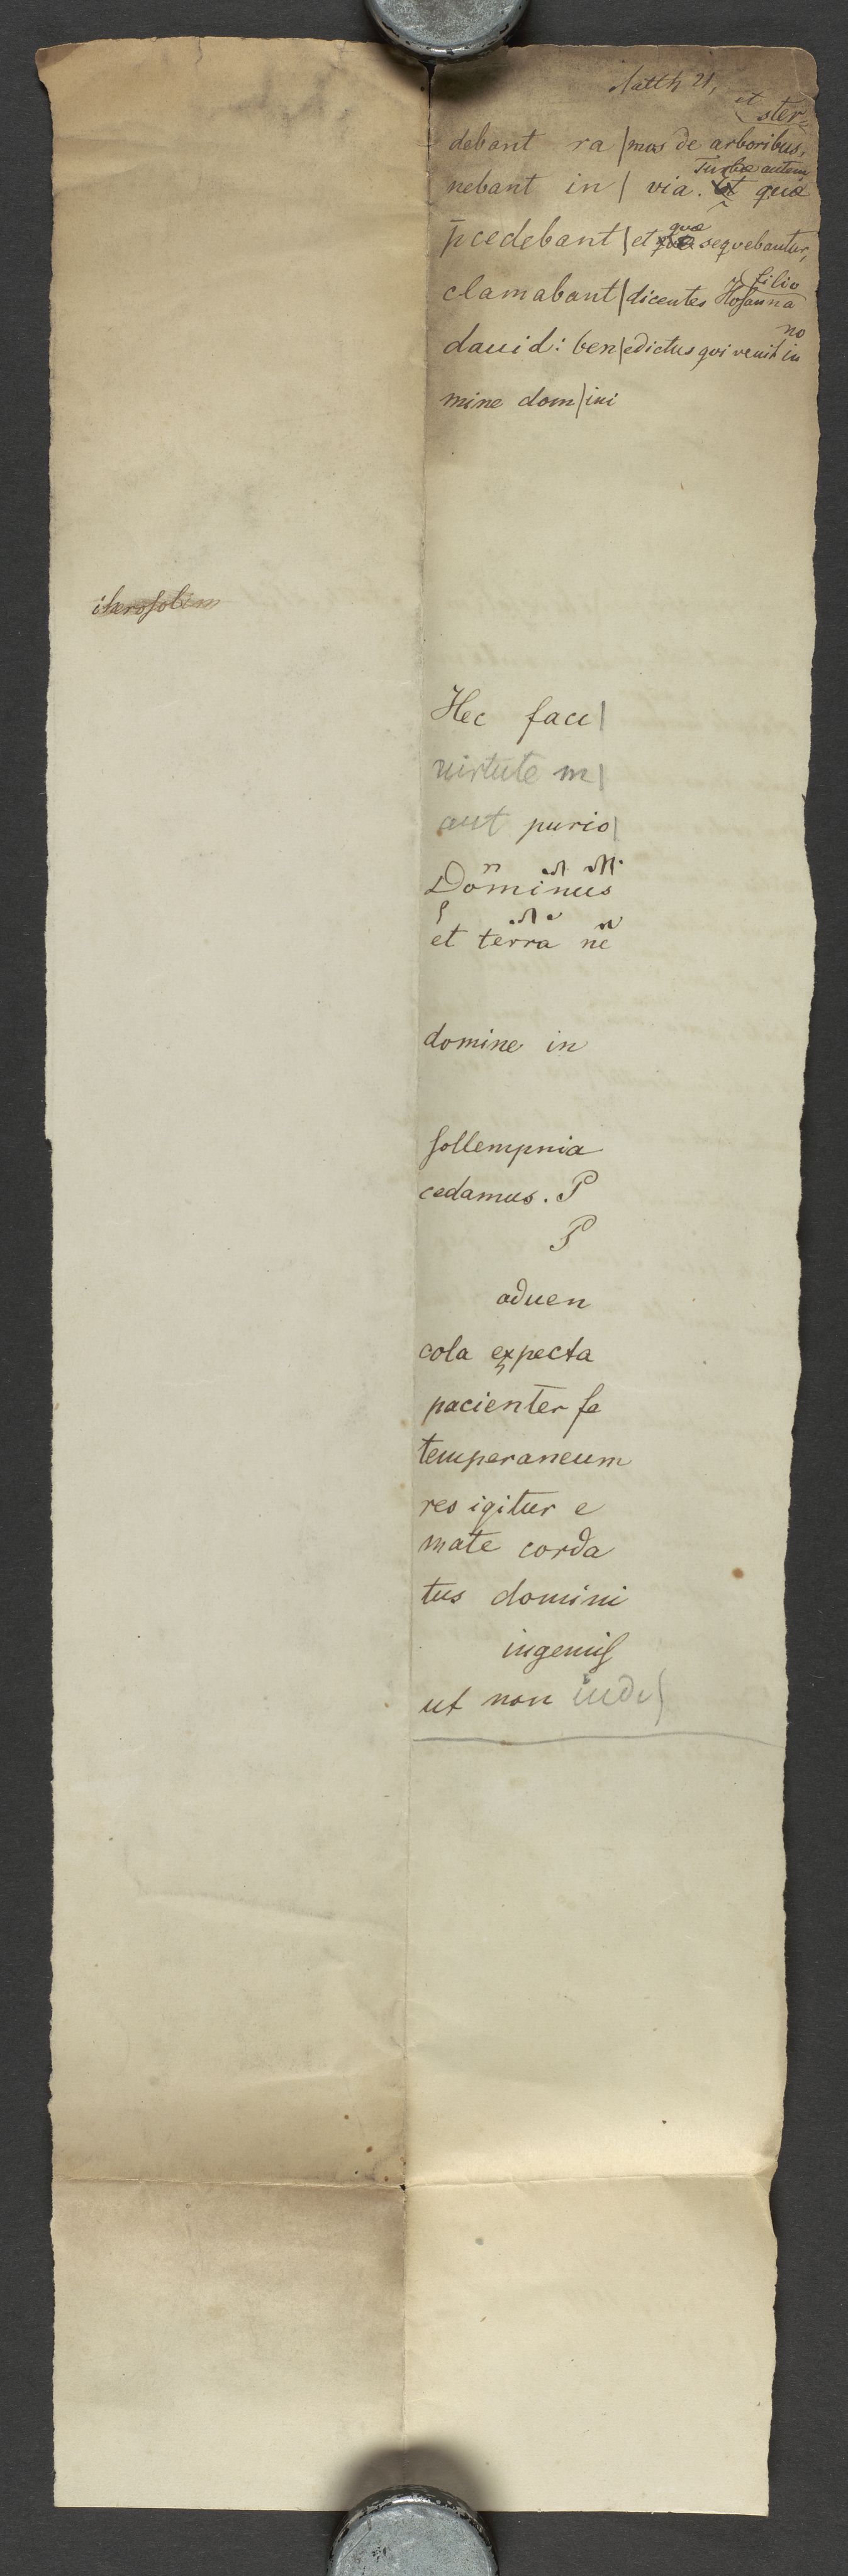 Matth 21,
et ster=
debant ra|mos de arboribus,
Turbæ autem
nebant in| via. et quæ
quæ
p̄cedebant|et quæ seqvebantur,
filio
clamabant|dicentes Hosanna
no
dauid: ben|edictus qvi venit in
mine dom|ini
iherosolim
Hec faci|
uirtute m|
aut purio|
Dominus
et terra ne
domine in
sollempnia
cedamus. P
P
aduen
cola expecta
pacienter fe
temperaneum
res igitur e
mate corda
tus domini
ingemis
ut non iudi|